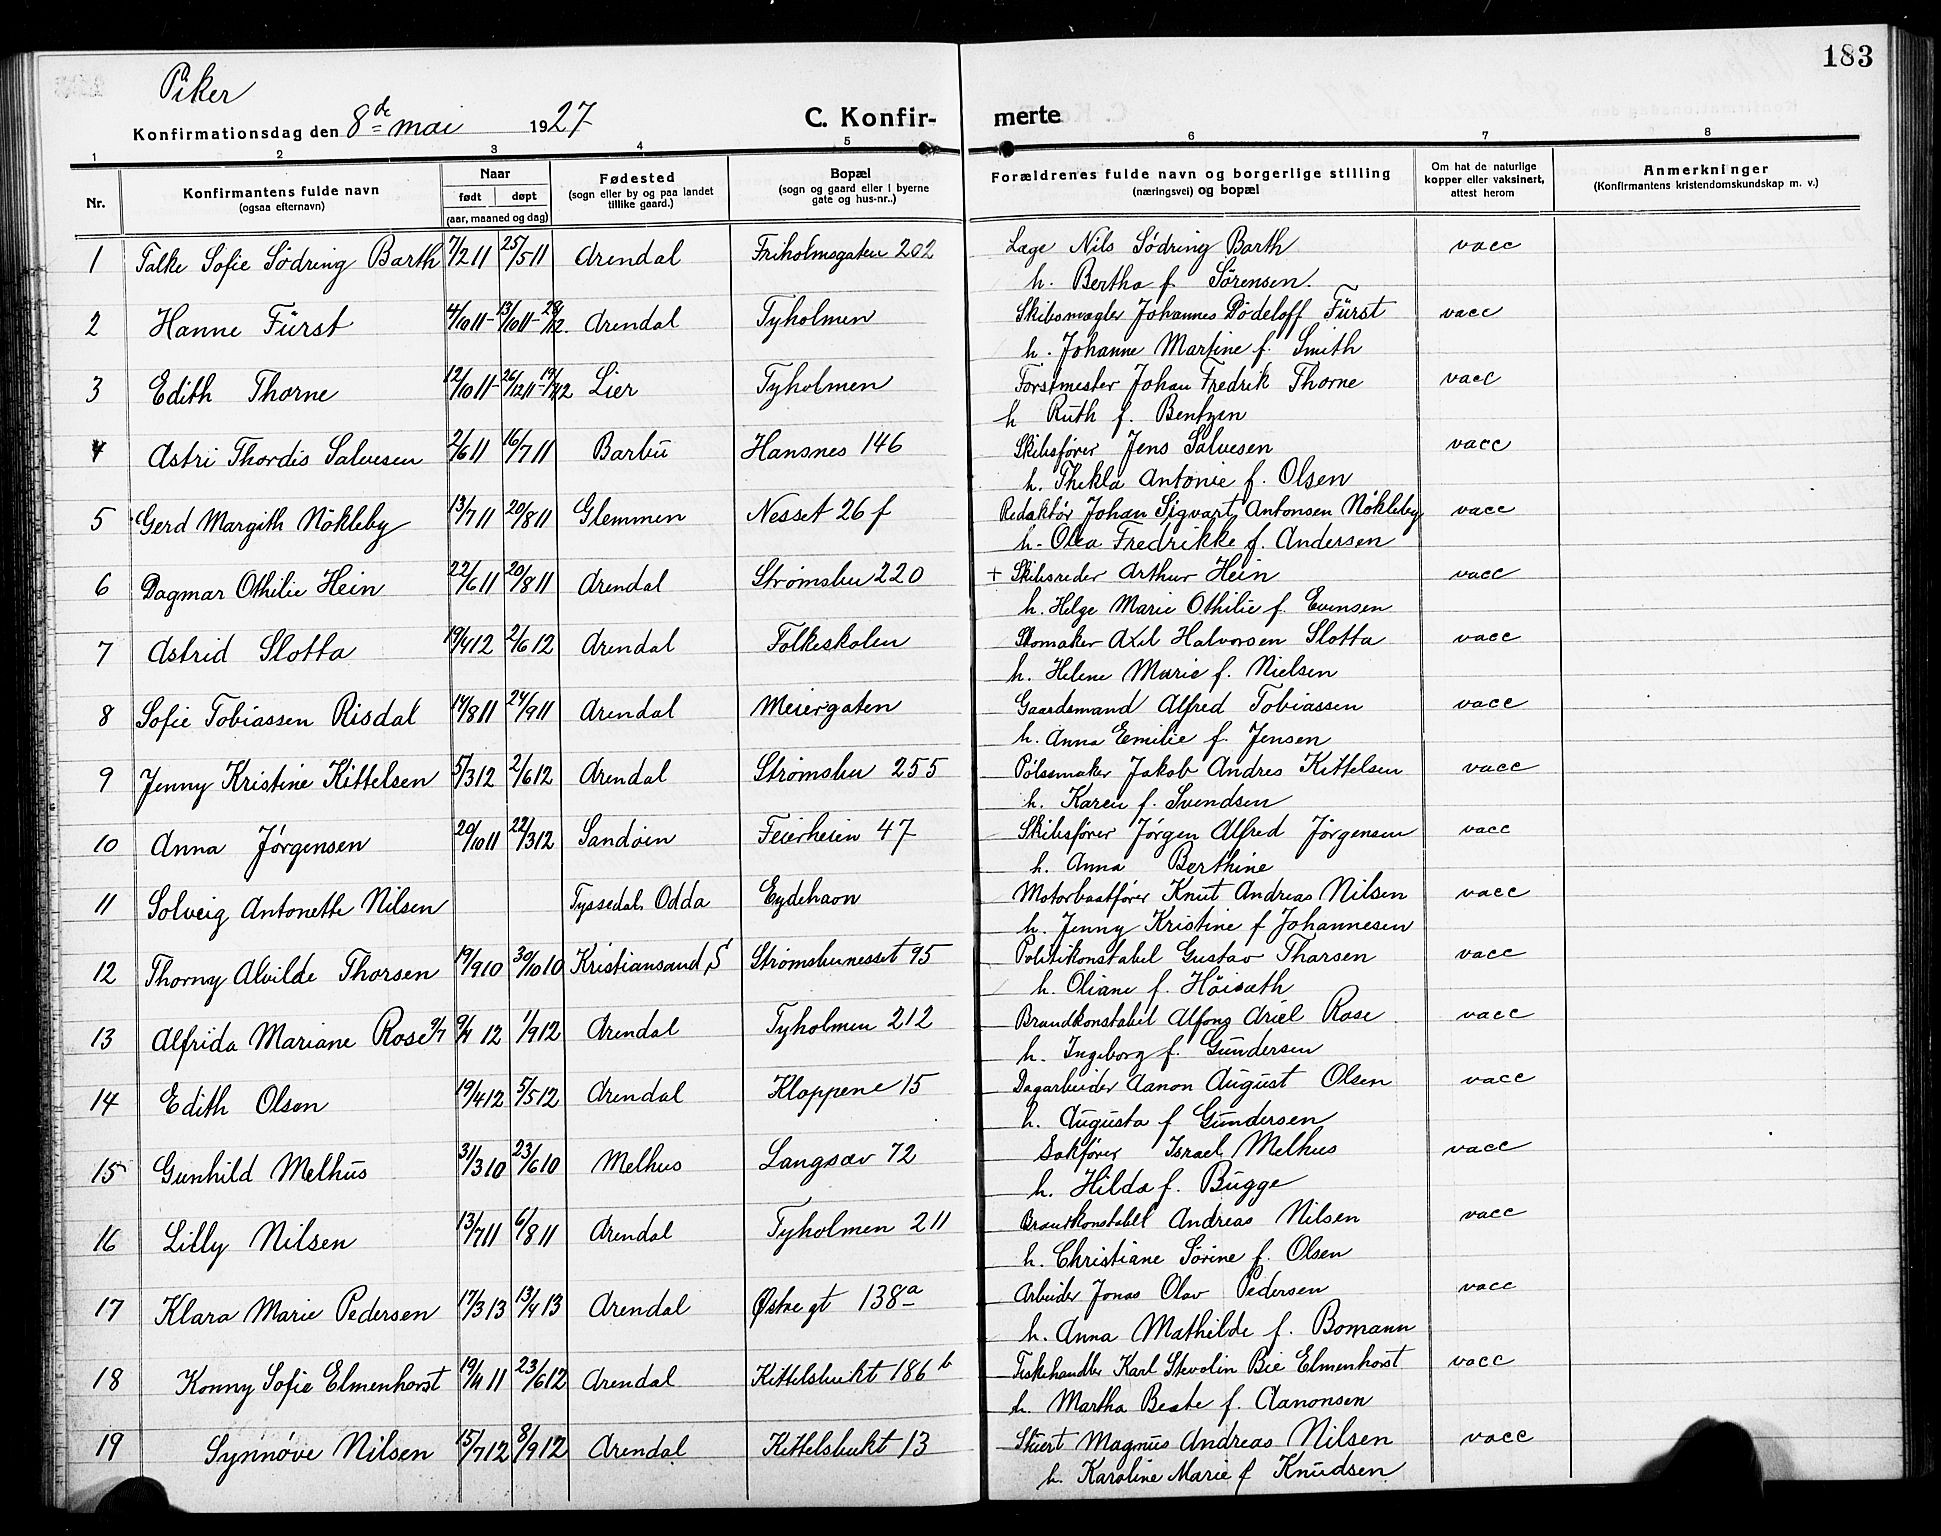 183
Piker
Konfirmationsdag den 8de mai 1927
C. Konfirmerte
1 2 3 4 5 6 7 8
Nr.
Konfirmantens fulde navn
(ogsaa efternavn)
Naar
født døpt
(aar, maaned og dag)
Fødested
(sogn eller by og paa landet
tillike gaard.)
Bopæl
(sogn og gaard eller i byerne
gate og hus-nr..)
Forældrenes fulde navn og borgerlige stilling
(næringsvei) og bopæl
Om hat de naturlige
kopper eller vaksinert,
attest herom
Anmerkninger
(Konfirmantens kristendomskundskap m. v.)
1 Talke Sofie Södring Barth 7/2 11 25/5 11 Arendal Friholmsgaten 202 Læge Nils Södring Barth vacc
h. Bertha f. Sørensen.
2 Hanne Fürst 4/10 11 - 13/10 11 - 28/12. Arendal Tyholmen Skibsmægler Johannes Dödeloff Fürst vacc
h. Johanne Martine f. Smith
3 Edith Thorne 12/10 11 - 26/12 11 - Lier Tyholmen Forstmester Johan Fredrik Thorne vacc
h Ruth f. Bentzen
4 Astri Thordis Salvesen 2/6 11 16/7 11 Barbu Hansnes 146 Skibsfører Jens Salvesen vacc
h. Thekla Antonie f. Olsen
5 Gerd Margith Nökleby 13/7 11 20/8 11 Glemmen Nesset 26 f Redaktør Johan Sigvart Antonsen Nökleby vacc
h. Olea Fredrikke f. Andersen
6 Dagmar Othilie Hein 22/6 11 20/8 11 Arendal Strømsbu 220 + Skibsreder Arthur Hein vacc
h. Helge Marie Othilie f. Evensen
7 Astrid Slotta 19/4 12 2/6 12 Arendal Folkeskolen Skomaker Axel Halvorsen Slotta vacc
h. Helene Marie f. Nielsen
8 Sofie Tobiassen Risdal 14/8 11 24/9 11 Arendal Meiergaten Gaardsmand Alfred Tobiassen vacc
h. Anna Emilie f. Jensen
9 Jenny Kristine Kittelsen 5/3 12 2/6 12 Arendal Strømsbu 255 Pölsemaker Jakob Andres Kittelsen vacc
h. Karen f. Svendsen
10 Anna Jörgensen 20/10 11 22/3 12 Sandöien Feierheien 47 Skibsfører Jörgen Alfred Jörgensen vacc
h. Anna Berthine
11 Solveig Antonette Nilsen Tyssedal, Odda Eydehavn Motorbaatfører Knut Andreas Nilsen vacc
h. Jenny Kristine f Johannesen
12 Thorny Alvilde Thorsen 19/9 10 30/10 10 Kristiansand, S Strømsbunesset 95 Politikonstabel Gustav Thorsen vacc
h. Oliane f. Höisæth
13 Alfrida Mariane Rose 9/7 9/4 12 1/9 12 Arendal Tyholmen 212 Brandkonstabel Alfons Ariel Rose vacc
h. Ingeborg f. Gundersen
14 Edith Olsen 19/4 12 5/5 12 Arendal Kloppene 15 Dagarbeider Aanon August Olsen vacc
h. Augusta f Gundersen
15 Gunhild Melhus 31/3 10 23/6 10 Melhus Langsæv 72 Sakfører Israel Melhus vacc
h. Hilda f. Bugge
16 Lilly Nilsen 13/7 11 6/8 11 Arendal Tyholmen 211 Brandkonstabel Andreas Nilsen vacc
h. Christiane Sörine f. Olsen
17 Klara Marie Pedersen 17/3 13 13/4 13 Arendal Østre gt 138a Arbeider Jonas Olav Pedersen vacc
h. Anna Mathilde f. Bomann
18 Konny Sofie Elmenhorst 19/4 11 23/6 12 Arendal Kittelsbukt 186 b Fiskehandler Karl Stevelin Bie Elmenhorst vacc
h. Martha Beate f. Aanonsen
19 Synnöve Nilsen 15/7 12 8/9 12 Arendal Kittelsbukt 13 Stuert Magnus Andreas Nilsen vacc
h. Karoline Marie f Knudsen